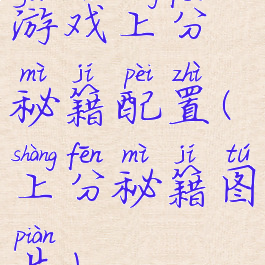 游戏上分
mì jí pèi zhì
秘籍配置(
shàng fēn mì jí tú
上分秘籍图
piàn
片)